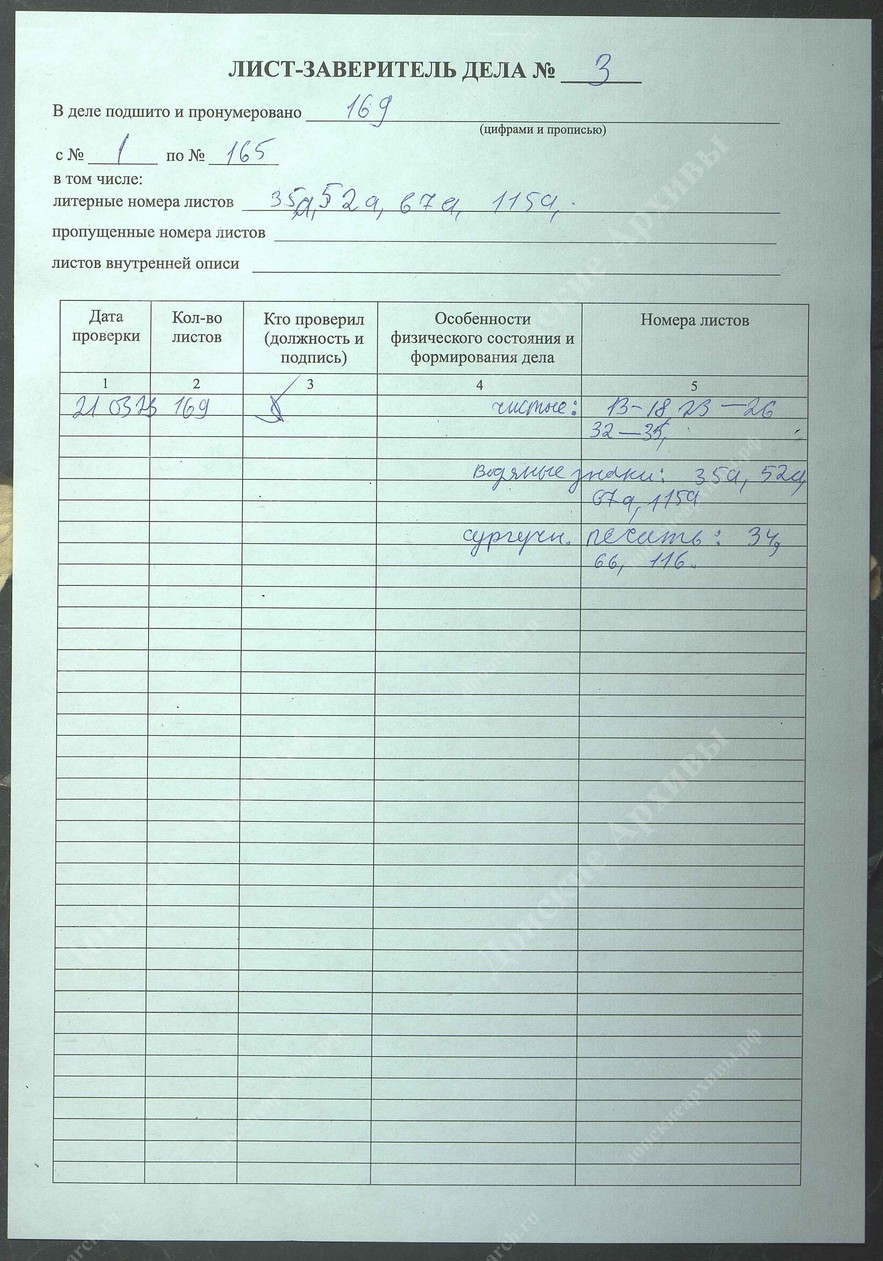 ЛИСТ-ЗАВЕРИТЕЛЬ ДЕЛА № 3
В деле подшито и пронумеровано 169
(цифрами и прописью)
с № 1 по № 165
в том числе:
литерные номера листов 35а, 52а, 67а, 115а,
пропущенные номера листов
листов внутренней описи
Дата проверки
Кол-во листов
Кто проверил (должность и подпись)
Особенности физического состояния и формирования дела
Номера листов
1 2 3 4 5
21 03 23 169 чистые: 13-18 23-26
32-33,
водяные знаки: 35а, 52а,
67а, 115а
сургучн. печать: 34,
66, 116.
Донские Архивы
Донские Архивы
донскиеархивы.рф